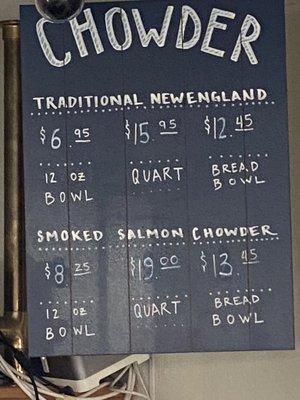 CHOWDER
TRADITIONAL NEW ENGLAND
$6.95 $15.95 $12.45
12 OZ BOWL QUART BREAD BOWL
SMOKED SALMON CHOWDER
$8.25 $19.00 $13.45
12 OZ BOWL QUART BREAD BOWL